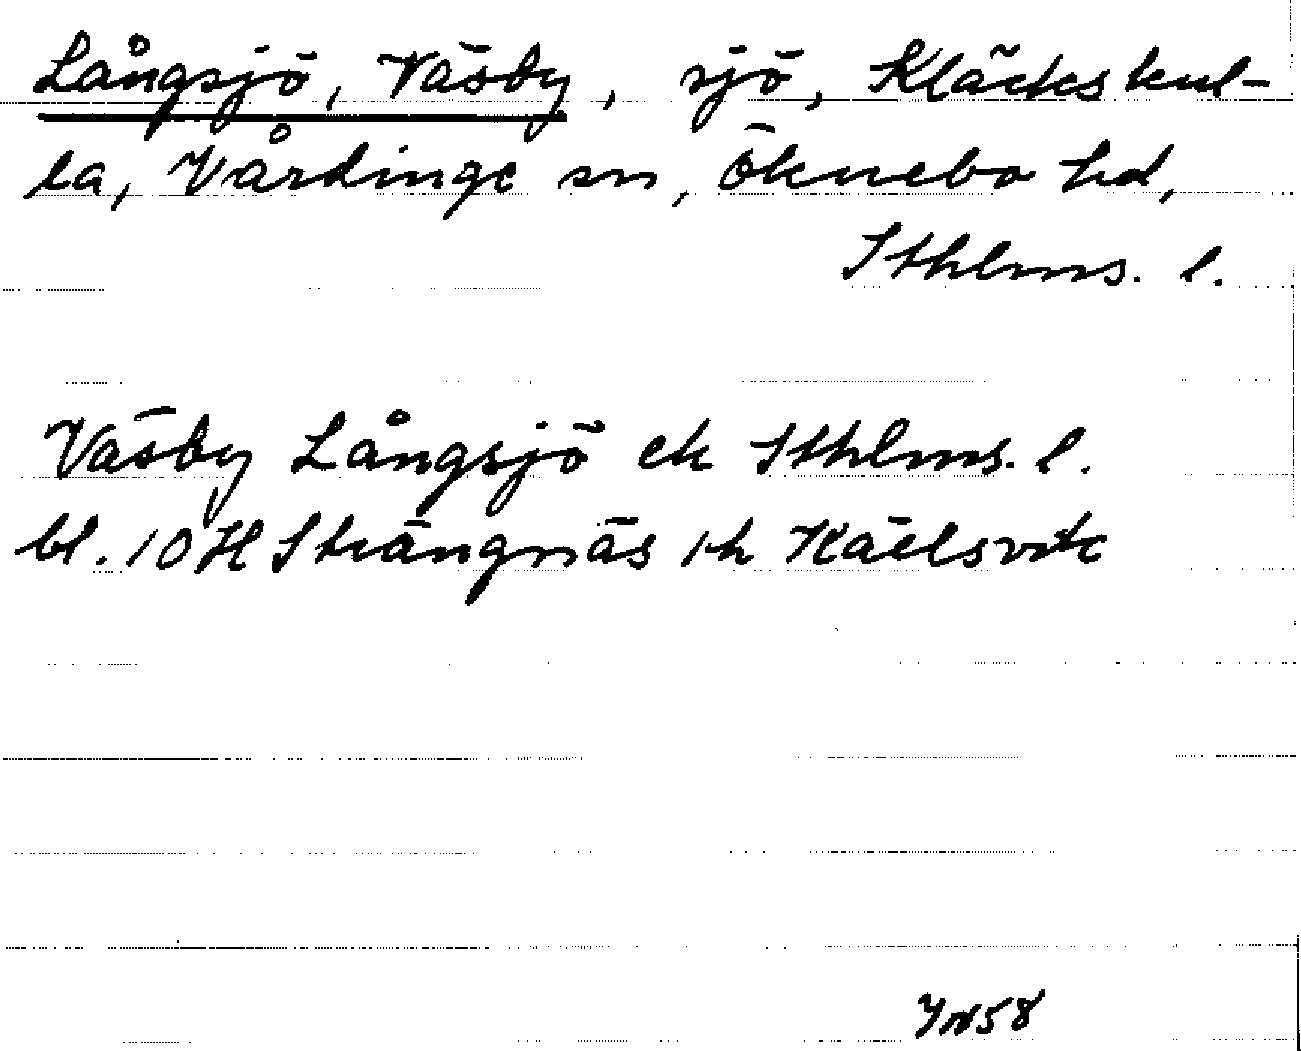 Långsjö, Väsby, sjö, Kläckskul-
la, Vårdinge sn, Öknebo hd,
Sthlms. l.
Väsby Långsjö ek Sthlms. l.
bl. 10H Strängnäs 1h Kälsvik
YN58